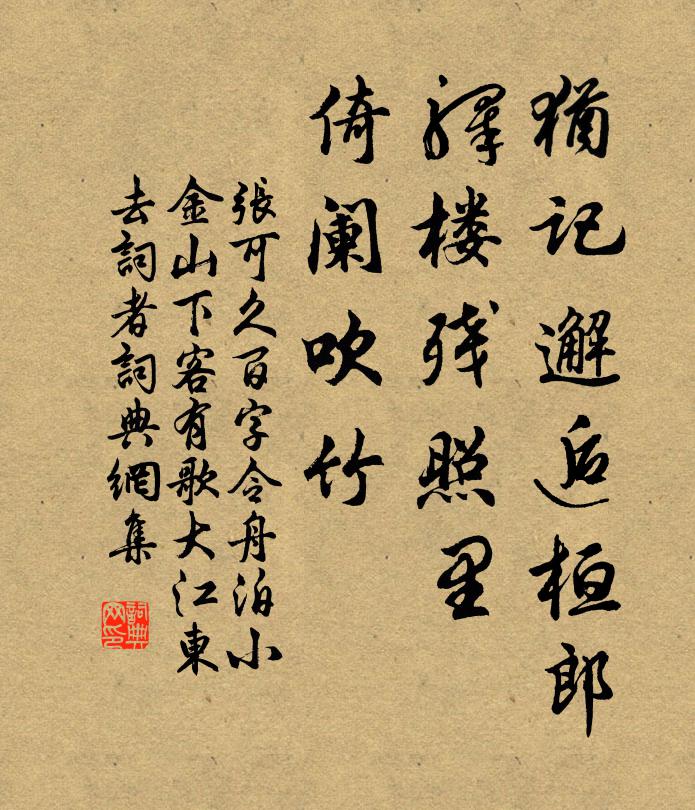 猶记邂逅桓郎
驿楼残照里
倚阑吹竹
張可久百字令舟泊小
金山下客有歌大江東
去詞者詞典網集
詞典网印